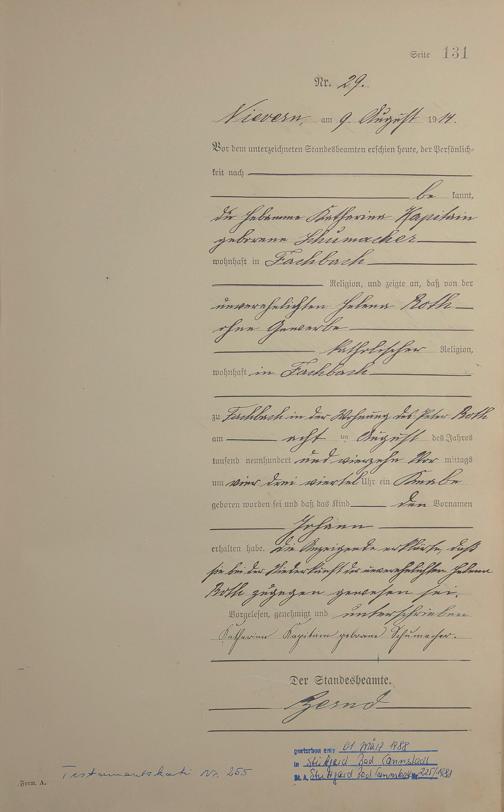 Seite 131
Nr. 29.
Nievern, am 9. August 1914.
Vor dem unterzeichneten Standesbeamten erschien heute, der Persönlich-
keit nach
be kannt,
die Hebamme Katharina Kapitain
geborene Schumacher
wohnhaft in Fachbach
Religion, und zeigte an, daß von der
unverehelichten Helena Roth
ohne Gewerbe
katholischer Religion,
wohnhaft in Fachbach
zu Fachbach in der Wohnung des Peter Roth
am acht ten August des Jahres
tausend neunhundert und vierzehn Vor mittags
um vier drei viertel Uhr ein Knabe
geboren worden sei und daß das Kind den Vornamen
Johann
erhalten habe. Die Anzeigende erklärte, daß
sie bei der Niederkunft der unverehelichten Helena
Roth zugegen gewesen sei.
Vorgelesen, genehmigt und unterschrieben
Katharina Kapitain geborene Schumacher.
Der Standesbeamte.
gestorben am: 01 März 1988
in Stuttgart Bad Cannstadt
St. A. Stuttgart Bad Cannstatt Nr.
Testamentskarti Nr. 255
Form. A.